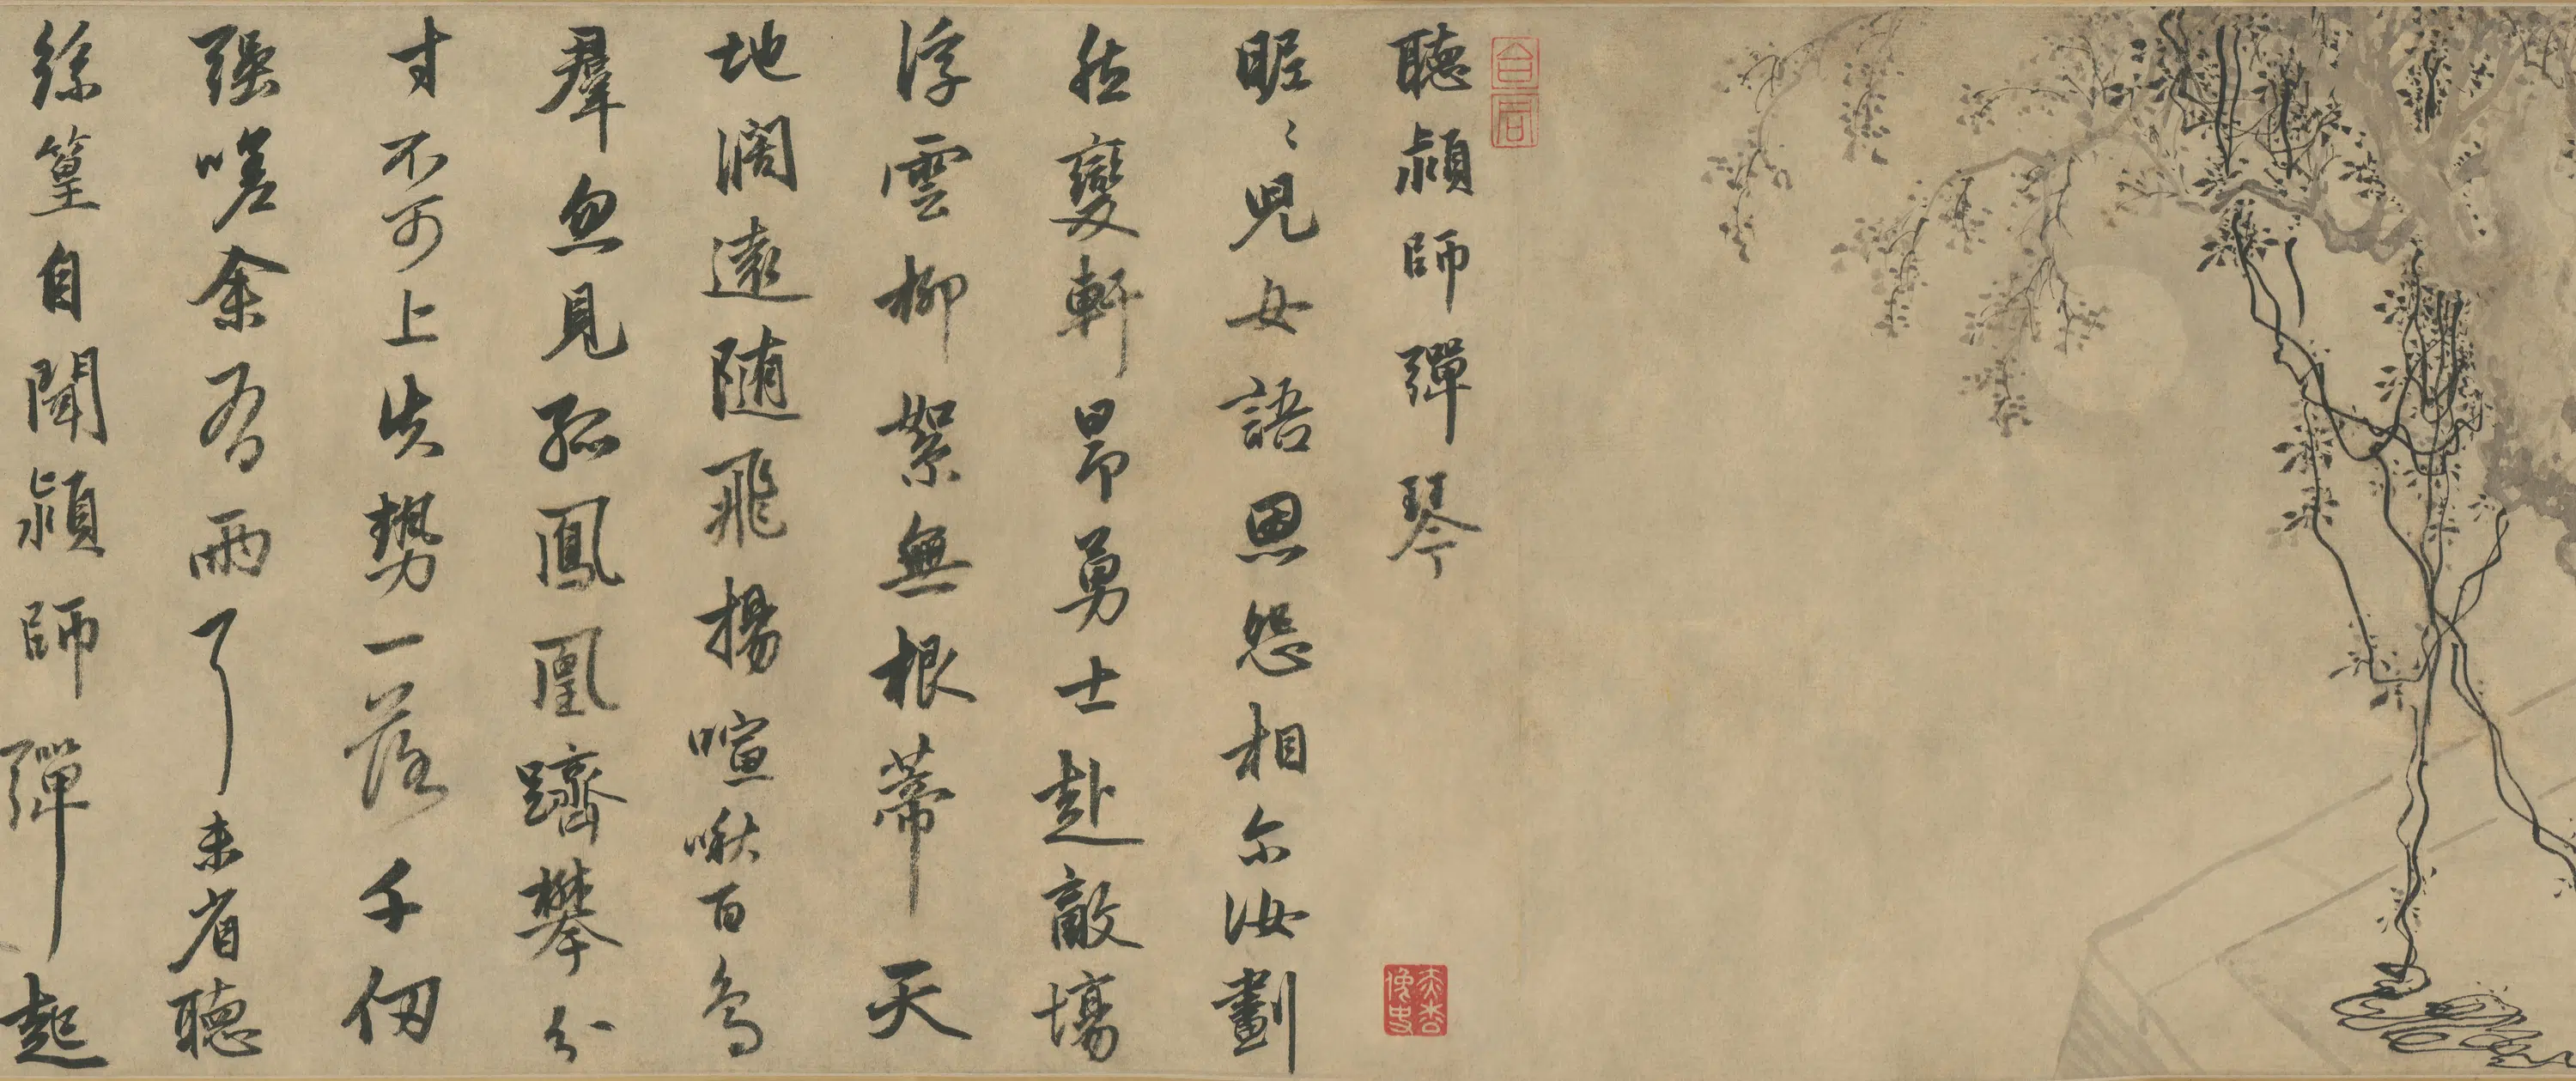 聽潁師彈琴
昵〻兒女語恩怨相尔汝劃
然變軒昂勇士赴敵場
浮雲柳絮無根蒂天
地闊遠随飛揚喧啾百鳥
羣忽見孤鳳凰躋攀分
寸不可上失勢一落千仞
强嗟余有兩耳未省聽
絲篁自聞潁師彈起